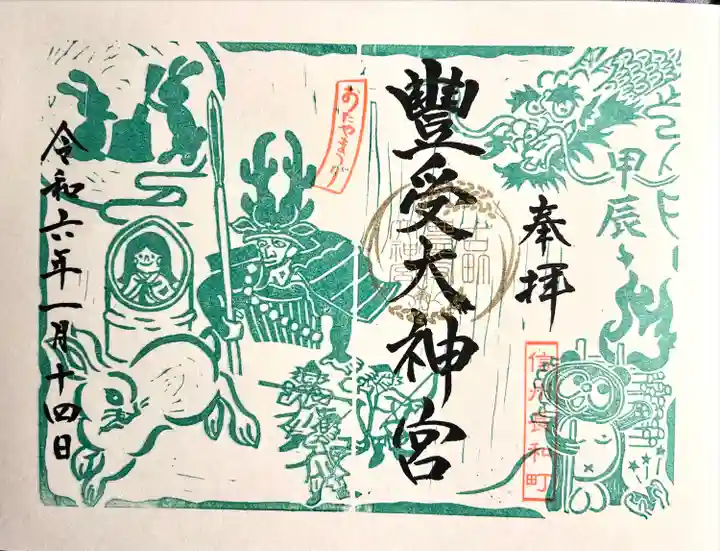 甲辰
奉拝
信州長和町
豐受大神宮
おたやまつり
令和六年一月十四日